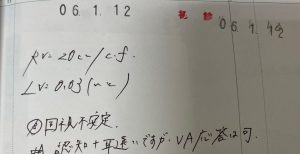 06.1.12
視診
06.1.12
RV=20cm/c.f.
LV=0.03(nc)
固視不安定.
認知+耳遠いですが、VA応答は可.